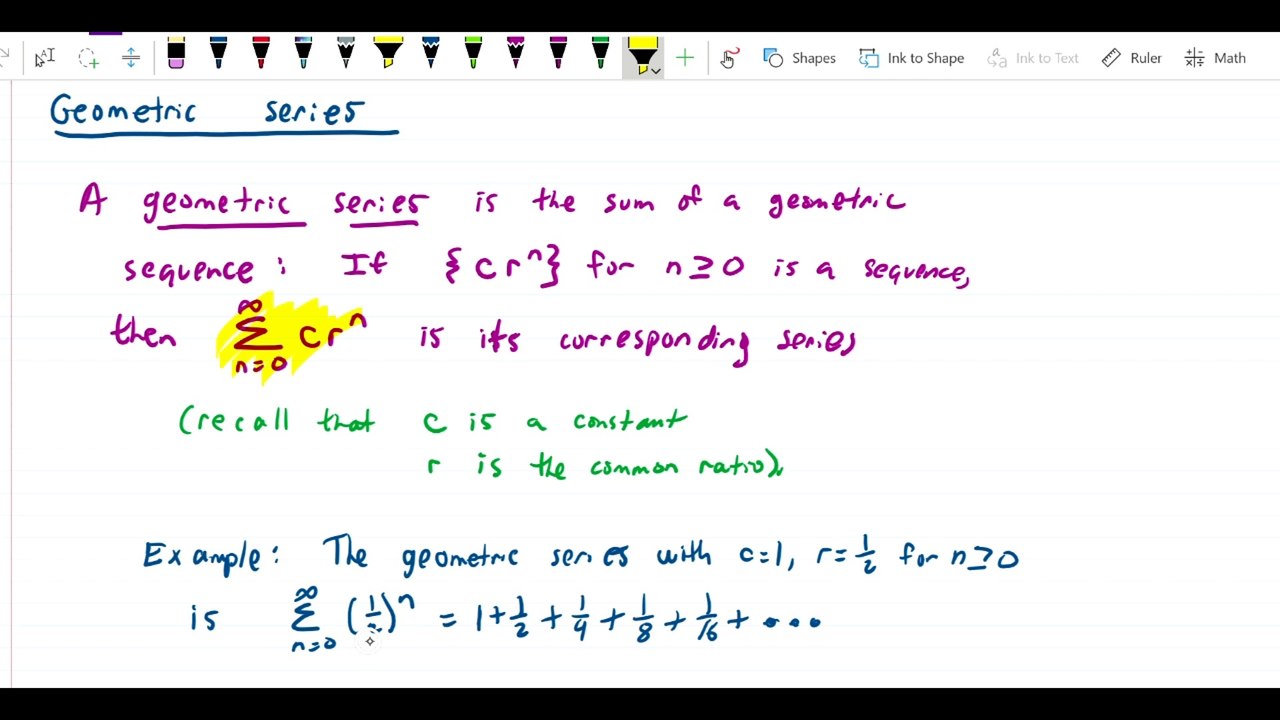 Shapes Ink to Shape Ink to Text Ruler Math
Geometric series
A geometric series is the sum of a geometric
sequence: If {cr^n} for n≥0 is a sequence,
then ∑_{n=0}^{∞} cr^n is its corresponding series
(recall that c is a constant
r is the common ratio).
Example: The geometric series with c=1, r=1/2 for n≥0
is ∑_{n=0}^{∞} (1/2)^n = 1+1/2+1/4+1/8+1/16+...